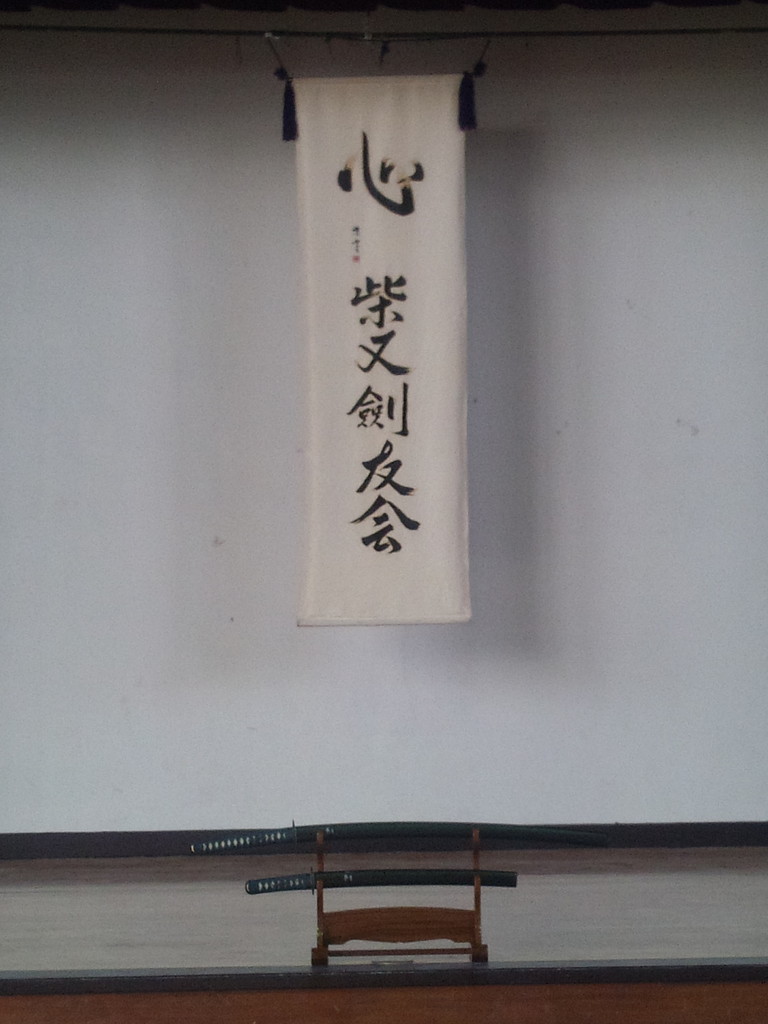 心
柴又劍友会